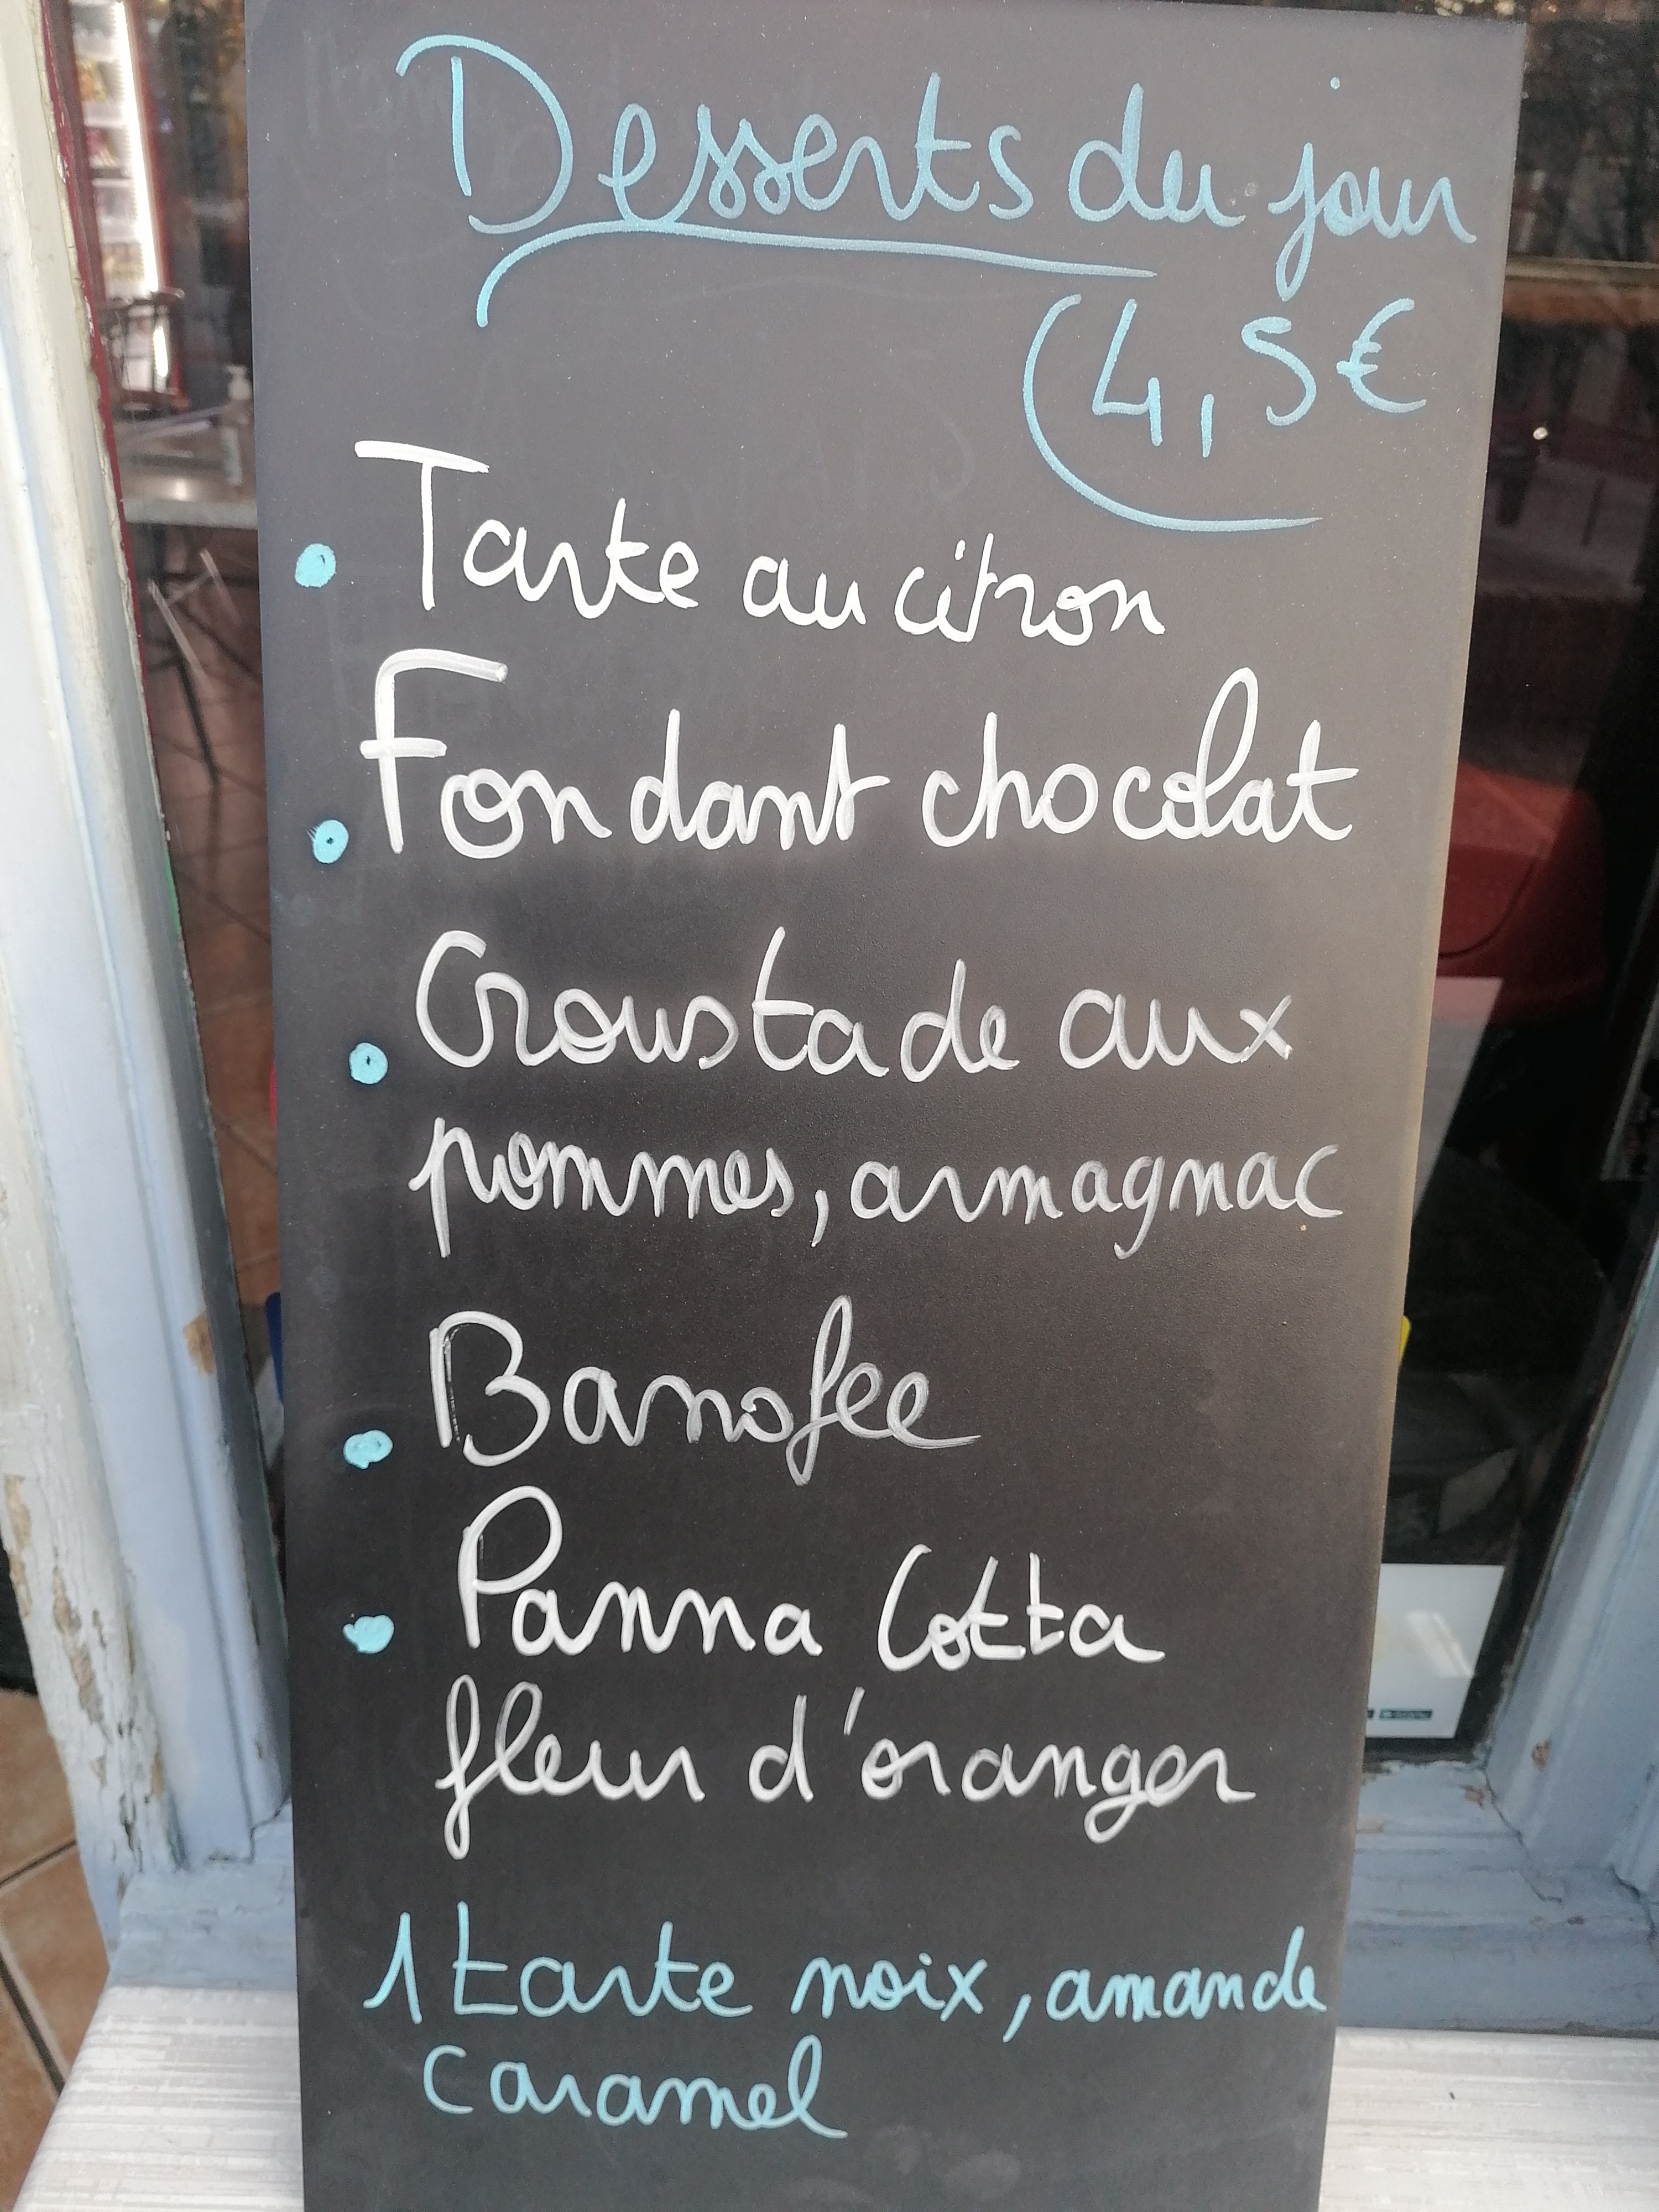 Desserts du jour
4,5€
• Tarte au citron
• Fondant chocolat
• Croustade aux
pommes, armagnac
• Banofee
• Panna Cotta
fleur d'oranger
1 tarte noix, amande
caramel